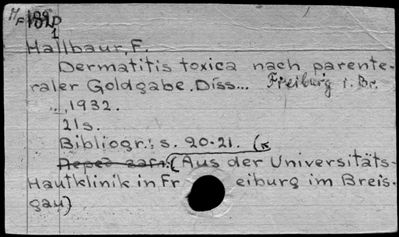 1
Hallbaur, F.
Dermatitis toxica nach parente-
raler Goldgabe. Diss... Freiburg i. Br.
..., 1932.
21s.
Bibliogr.: s. 20-21. (x
(Aus der Universitäts-
Hautklinik in Freiburg im Breis-
gau)